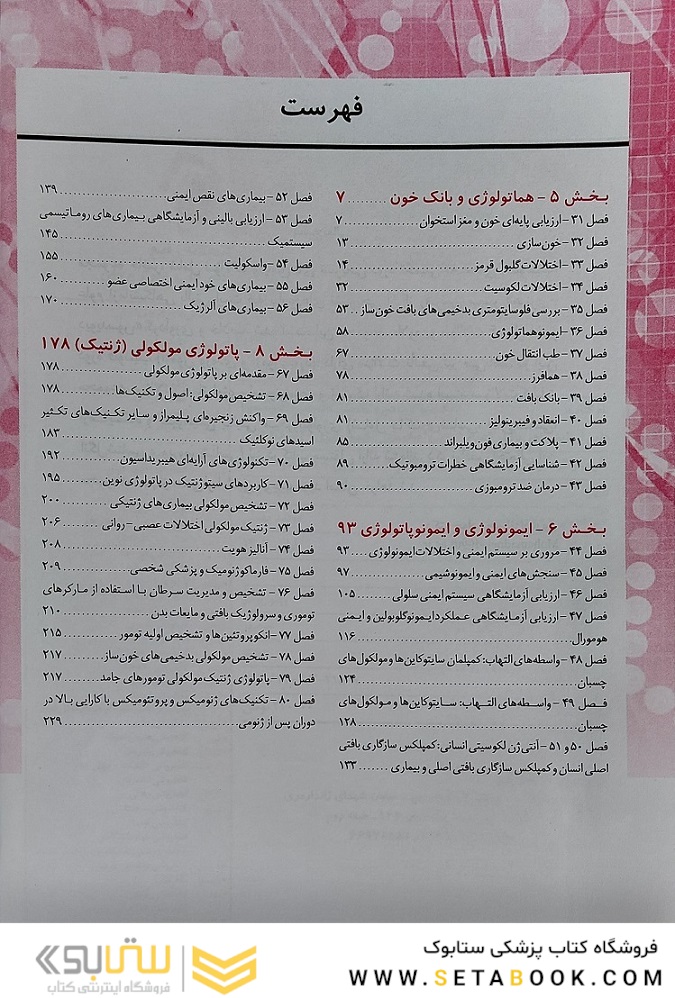 فهرست
بخش ۵ - هماتولوژی و بانک خون ......... ۷
فصل ۳۱ - ارزیابی پایه‌ای خون و مغز استخوان .................. ۷
فصل ۳۲ - خون‌سازی .................. ۱۳
فصل ۳۳ - اختلالات گلبول قرمز .................. ۱۴
فصل ۳۴ - اختلالات لکوسیت .................. ۳۲
فصل ۳۵ - بررسی فلوسایتومتری بدخیمی‌های بافت خون‌ساز .. ۵۳
فصل ۳۶ - ایمونوهماتولوژی .................. ۵۸
فصل ۳۷ - طب انتقال خون .................. ۶۷
فصل ۳۸ - همافرز .................. ۷۸
فصل ۳۹ - بانک بافت .................. ۸۱
فصل ۴۰ - انعقاد و فیبرینولیز .................. ۸۱
فصل ۴۱ - پلاکت و بیماری فون‌ویلبراند .................. ۸۵
فصل ۴۲ - شناسایی آزمایشگاهی خطرات ترومبوتیک ........ ۸۹
فصل ۴۳ - درمان ضد ترومبوزی .................. ۹۰
بخش ۶ - ایمونولوژی و ایمونوپاتولوژی ۹۳
فصل ۴۴ - مروری بر سیستم ایمنی و اختلالات ایمونولوژی .... ۹۳
فصل ۴۵ - سنجش‌های ایمنی و ایمونوشیمی .................. ۹۷
فصل ۴۶ - ارزیابی آزمایشگاهی سیستم ایمنی سلولی ........ ۱۰۵
فصل ۴۷ - ارزیابی آزمایشگاهی عملکرد ایمونوگلوبولین و ایمنی
هومورال .................. ۱۱۶
فصل ۴۸ - واسطه‌های التهاب: کمپلمان سایتوکاین‌ها و مولکول‌های
چسبان .................. ۱۲۴
فصل ۴۹ - واسطه‌های التهاب: سایتوکاین‌ها و مولکول‌های
چسبان .................. ۱۲۸
فصل ۵۰ و ۵۱ - آنتی‌ژن لکوسیتی انسانی: کمپلکس سازگاری بافتی
اصلی انسان و کمپلکس سازگاری بافتی اصلی و بیماری ....... ۱۳۳
فصل ۵۲ - بیماری‌های نقص ایمنی .................. ۱۳۹
فصل ۵۳ - ارزیابی بالینی و آزمایشگاهی بیماری‌های روماتیسمی
سیستمیک .................. ۱۴۵
فصل ۵۴ - واسکولیت .................. ۱۵۵
فصل ۵۵ - بیماری‌های خود ایمنی اختصاصی عضو ........ ۱۶۰
فصل ۵۶ - بیماری‌های آلرژیک .................. ۱۷۰
بخش ۸ - پاتولوژی مولکولی (ژنتیک) ۱۷۸
فصل ۶۷ - مقدمه‌ای بر پاتولوژی مولکولی .................. ۱۷۸
فصل ۶۸ - تشخیص مولکولی: اصول و تکنیک‌ها ........ ۱۷۸
فصل ۶۹ - واکنش زنجیره‌ای پلیمراز و سایر تکنیک‌های تکثیر
اسیدهای نوکلئیک .................. ۱۸۳
فصل ۷۰ - تکنولوژی‌های آرایه‌ای هیبریداسیون ........ ۱۹۲
فصل ۷۱ - کاربردهای سیتوژنتیک در پاتولوژی نوین ........ ۱۹۵
فصل ۷۲ - تشخیص مولکولی بیماری‌های ژنتیکی ........ ۲۰۰
فصل ۷۳ - ژنتیک مولکولی اختلالات عصبی - روانی ........ ۲۰۶
فصل ۷۴ - آنالیز هویت .................. ۲۰۸
فصل ۷۵ - فارماکوژنومیک و پزشکی شخصی ........ ۲۰۹
فصل ۷۶ - تشخیص و مدیریت سرطان با استفاده از مارکرهای
توموری و سرولوژیک بافتی و مایعات بدن .................. ۲۱۰
فصل ۷۷ - انکوپروتئین‌ها و تشخیص اولیه تومور ........ ۲۱۵
فصل ۷۸ - تشخیص مولکولی بدخیمی‌های خون‌ساز ........ ۲۱۷
فصل ۷۹ - پاتولوژی ژنتیک مولکولی تومورهای جامد ........ ۲۱۷
فصل ۸۰ - تکنیک‌های ژنومیکس و پروتئومیکس با کارایی بالا در
دوران پس از ژنومی .................. ۲۲۹
فروشگاه کتاب پزشکی ستابوک
WWW.SETABOOK.COM
ستابوک
فروشگاه اینترنتی کتاب